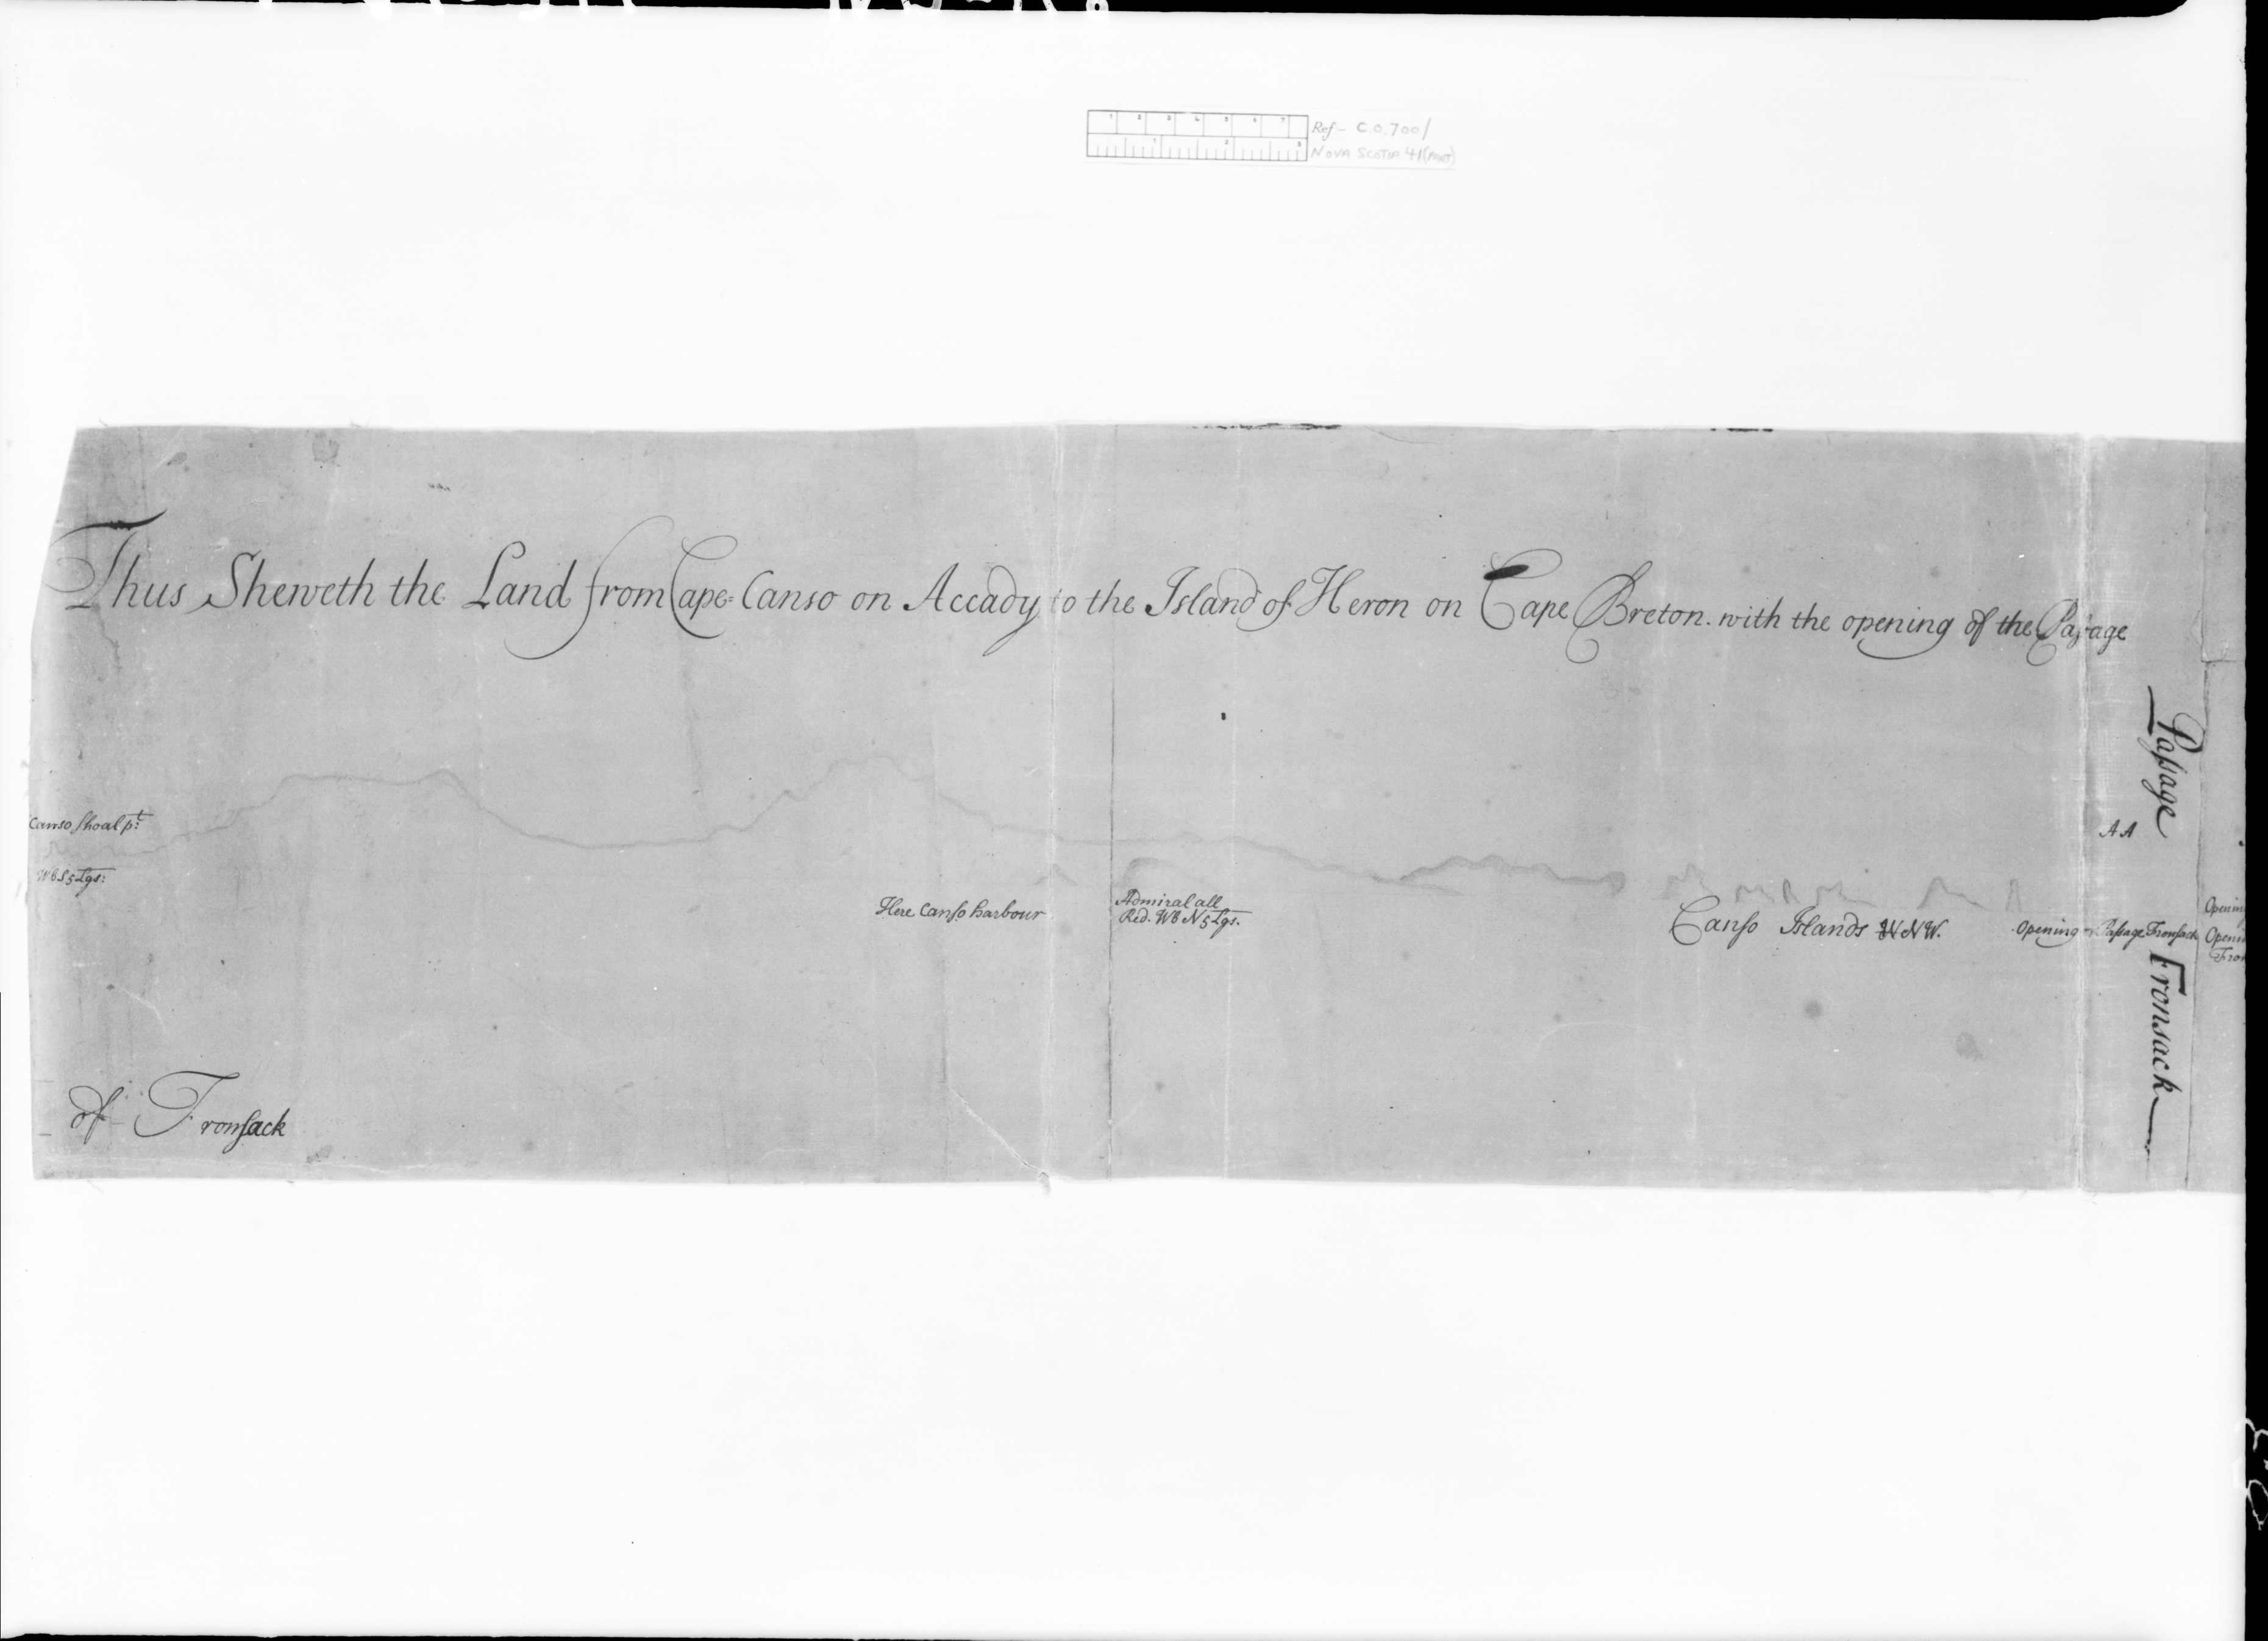 Ref - C.O.700/
NOVA SCOTIA 41(PART)
Thus Sheweth the Land from Cape=Canso on Accady to the Island of Heron on Cape Breton. with the opening of the Passage
of Fronsack
Canso Shoal pt:
WbS 5 Lgs:
Here Canso harbour
Admiral all
Red. Wb N 5 Lgs.
Canso Islands WNW.
Opening Passage Fronsack
AA
Passage Fronsack